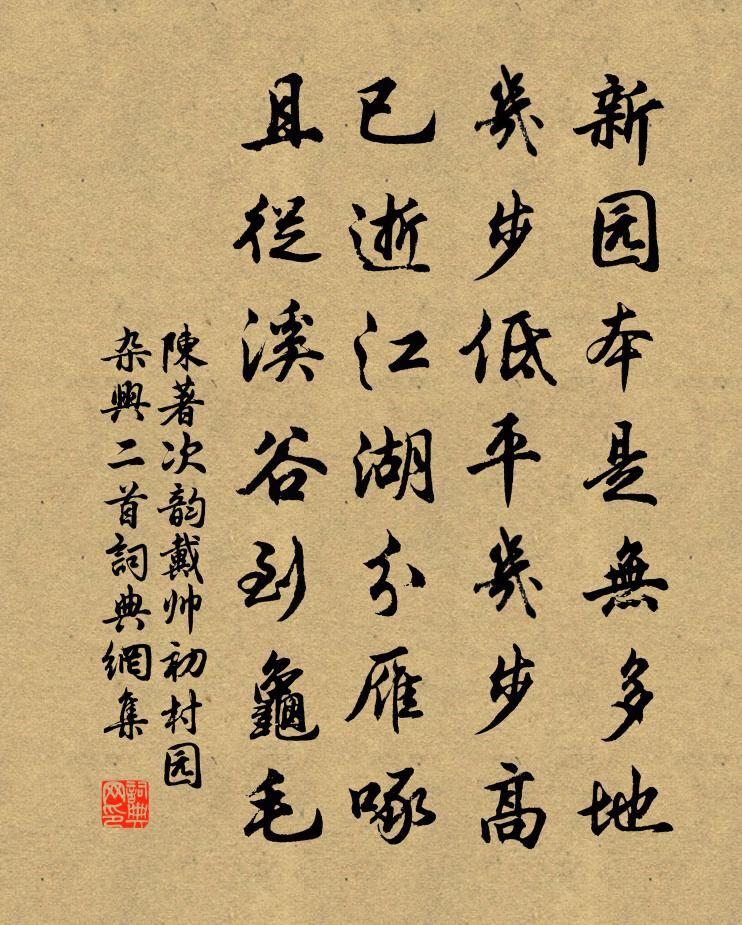 新园本是無多地
幾步低平幾步高
已逝江湖分雁啄
且從溪谷到龜毛
陳著次韵戴帅初村园
杂興二首詞典網集
詞典网印